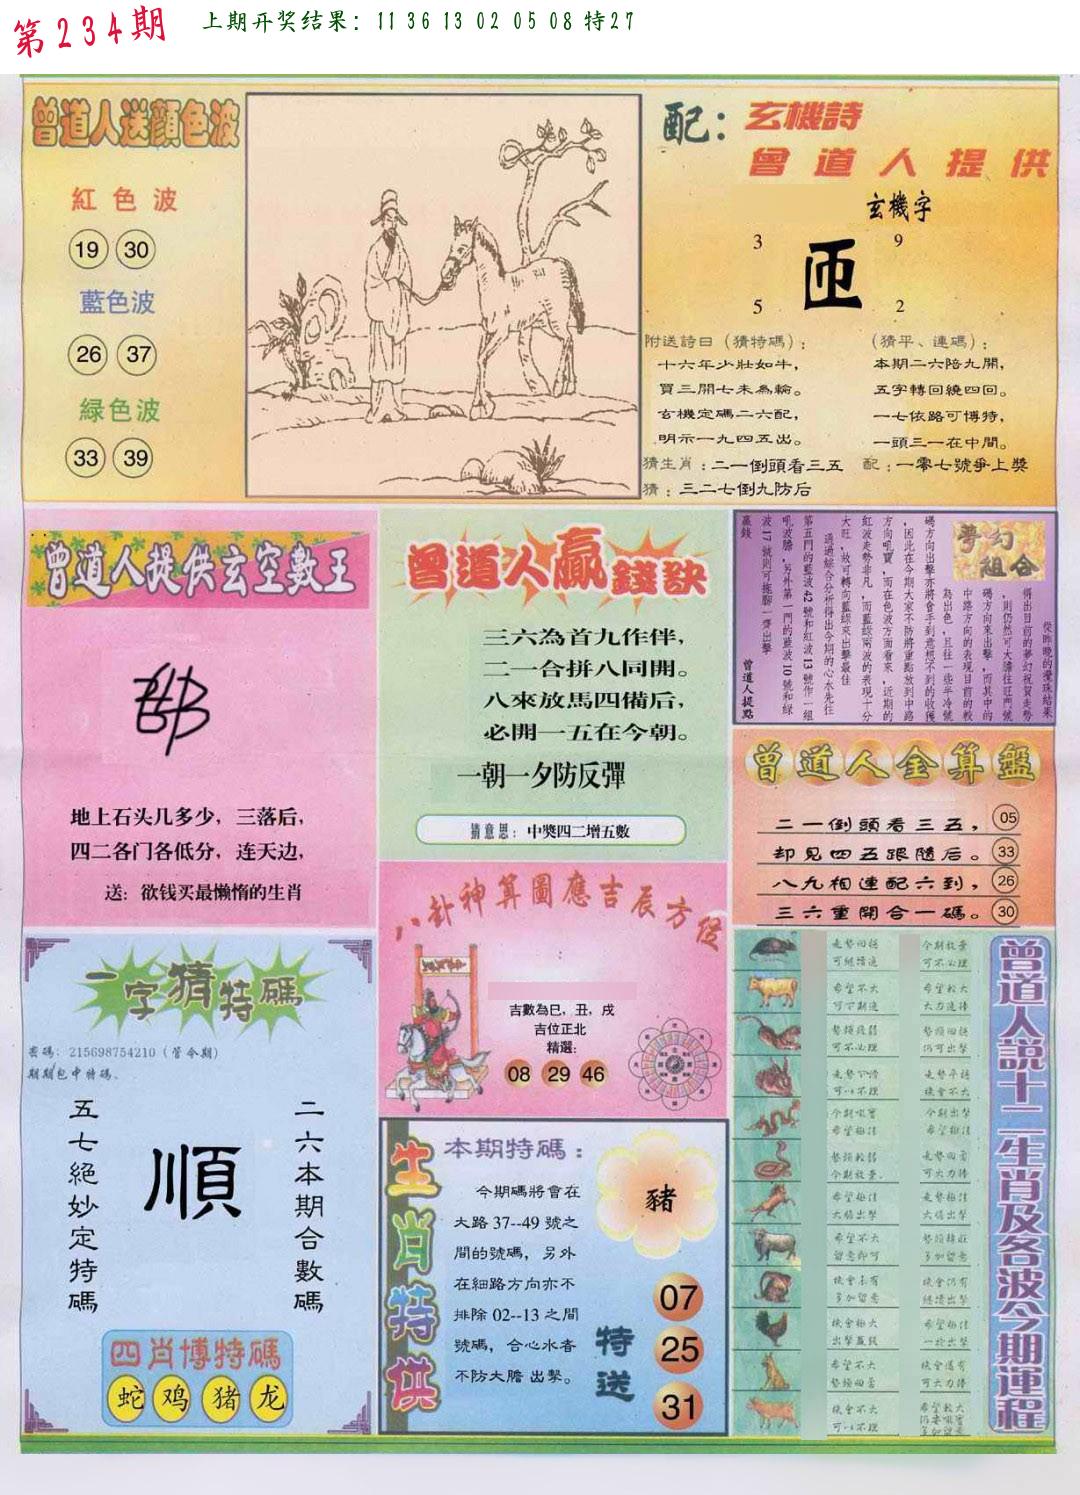 第234期
上期开奖结果：11 36 13 02 05 08 特27
曾道人送顏色波
紅色波
19 30
藍色波
26 37
緑色波
33 39
配：玄機詩
曾道人提供
玄機字
3 9
匝
5 2
附送詩曰（猜特碼）：
十六年少壯如牛，
買三開七未為輸。
玄機定碼二六配，
明示一九四五出。
（猜平、連碼）：
本期二六陪九開，
五字轉回繞四回。
一七依路可博特，
一頭三一在中間。
猜生肖：二一倒頭看三五
配：一零七號爭上獎
猜：三二七倒九防后
曾道人提供玄空數王
地上石头几多少，三落后，
四二各门各低分，连天边，
送：欲钱买最懒惰的生肖
曾道人贏錢訣
三六為首九作伴，
二一合拼八同開。
八來放馬四備后，
必開一五在今朝。
一朝一夕防反彈
猜意思：中獎四二增五數
夢幻組合
從昨晚的攪珠結果
得出目前的夢幻祝賀走勢
，則仍然可大膽往旺門號
碼方向來出擊，而其中的
中路方向的表現目前的較
為出色，且往一些半冷號
碼方向出擊亦將會手到意想不到的收獲
，因此在今期大家不防將重點放到中路
方向吼買，而在色波方面看來，近期的
紅波走勢非凡，而藍綠兩波的表現十分
大旺，故可轉向藍綠來出擊最佳
通過綜合分析得出今期的心水先往
第五門的藍波42號和紅波13號作一組
吼波膽，另外第一門的藍波10號和綠
波17號則可拖腳一齊出擊
贏錢
曾道人提點
曾道人金算盤
二一倒頭看三五， 05
却見四五跟隨后。 33
八九相連配六到， 26
三六重開合一碼。 30
一字猜特碼
密碼：215698754210（管今期）
期期包中特碼。
五七絕妙定特碼
順
二六本期合數碼
四肖博特碼
蛇 鸡 猪 龙
八卦神算圖應吉辰方位
吉數為巳，丑，戌
吉位正北
精選：
08 29 46
生肖特供
本期特碼：
今期碼將會在
大路 37--49 號之
間的號碼，另外
在細路方向亦不
排除 02--13 之間
號碼，合心水者
不防大膽 出擊。
豬
特送
07
25
31
曾道人説十二生肖及各波今期運程